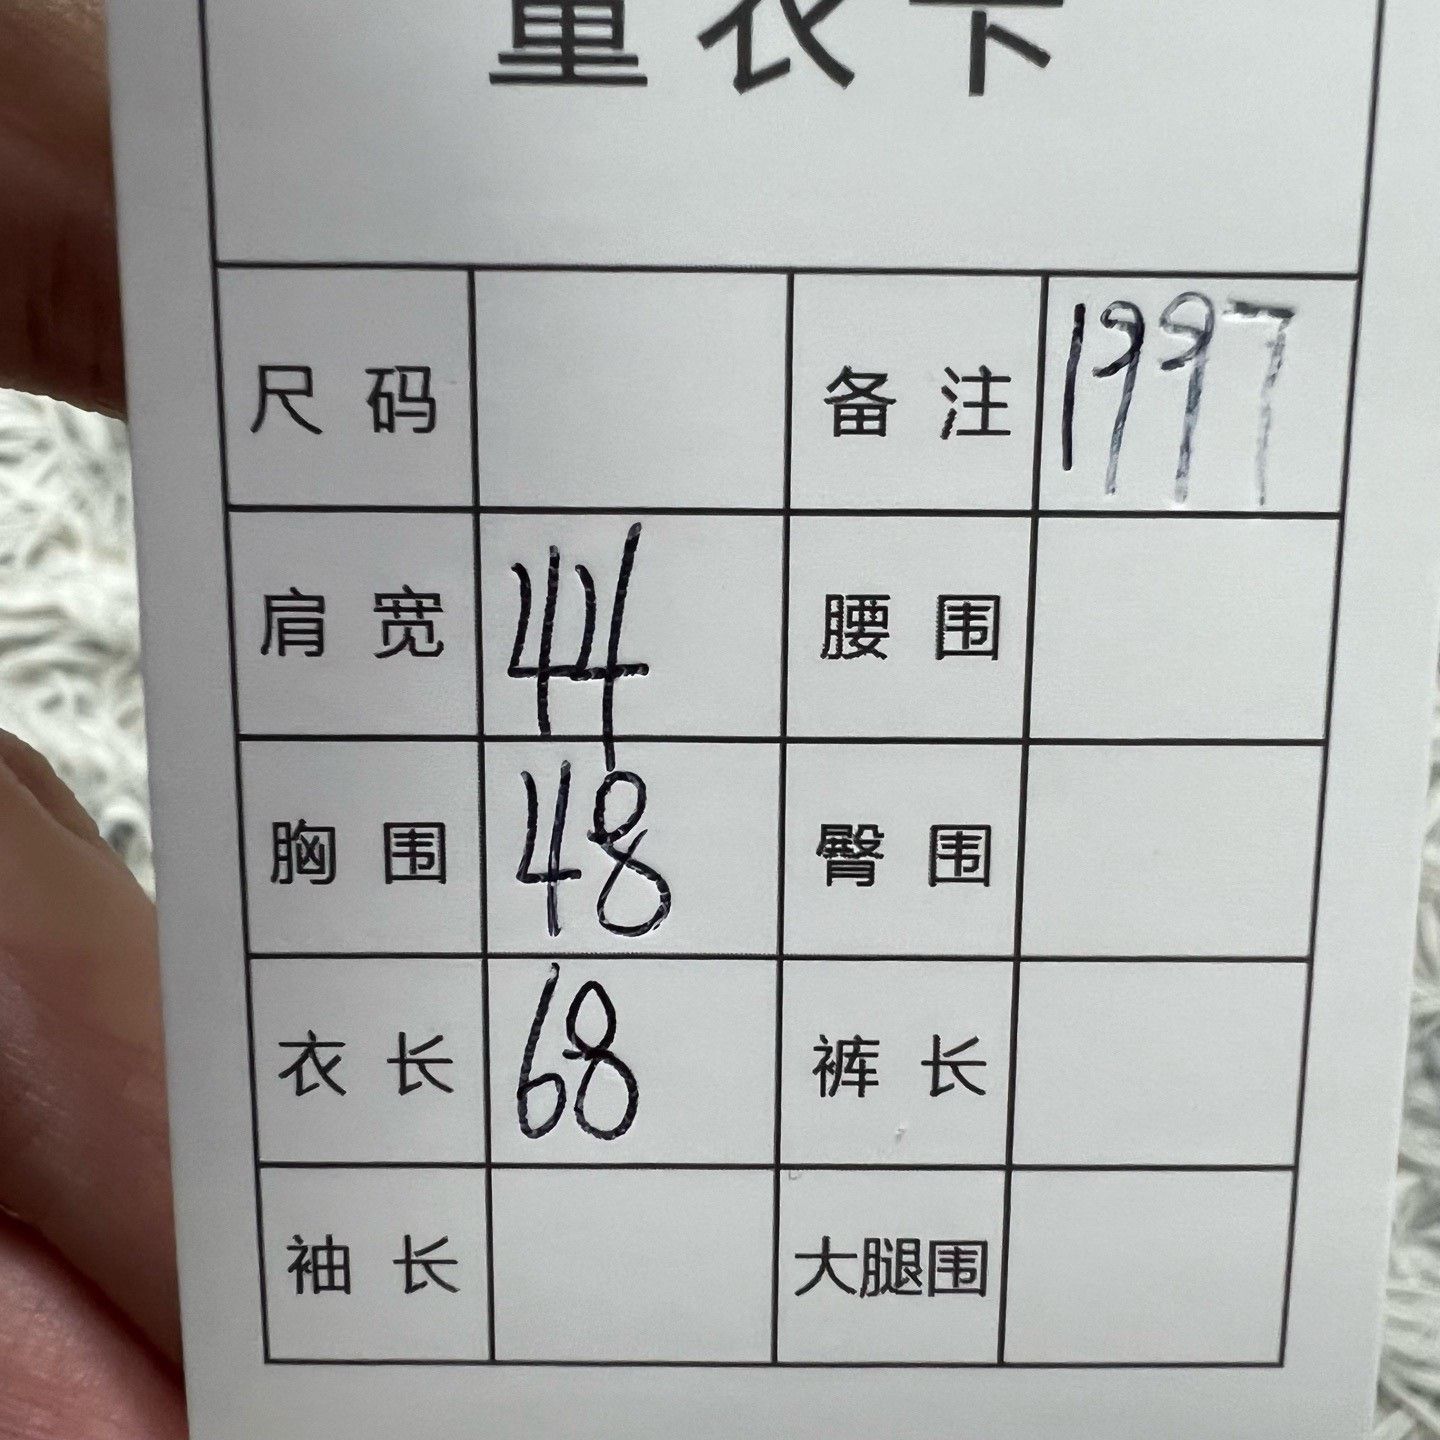 量衣卡
尺码 备注 1997
肩宽 44 腰围
胸围 48 臀围
衣长 68 裤长
袖长 大腿围